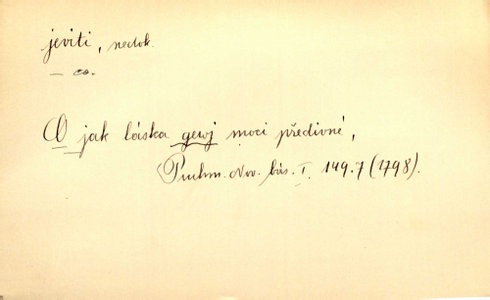 jeviti, nedok.
— co.
O jak láska gewj moci předivné,
Puchm. Nov. bás. I. 149.7 (1798).